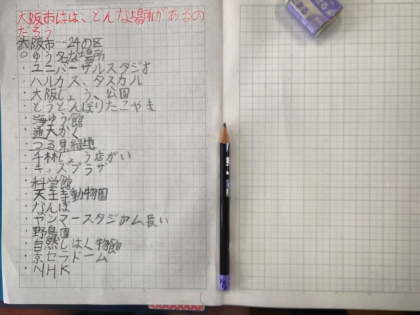 大阪市には、どんな場所があるの
だろう
大阪市…24の区
○ゆう名な場所
・ユニバーサルスタジオ
・ハルカス、タスカル
・大阪じょう、公園
・どうとんぼりたこやき
・海ゆう館
・通天かく
・つる見緑地
・千林しょう店がい
・キッズプラザ
・科学館
・天王寺動物園
・なんば
・ヤンマースタジアム長い
・野鳥園
・自然しはく物館
・京セラドーム
・NHK